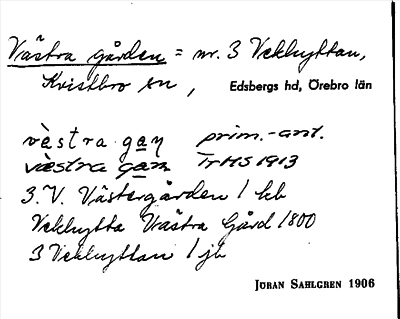 Västra gården = nr. 3 Vekhyttan,
Kvistbro sn, Edsbergs hd, Örebro län
vèstra gaṇ prim.-ant.
væstra gan TrHS 1913
3. V. Västergården 1 kb
Vekhytta Wästra Gård 1800
3 Vekhyttan 1 jb
JÖRAN SAHLGREN 1906